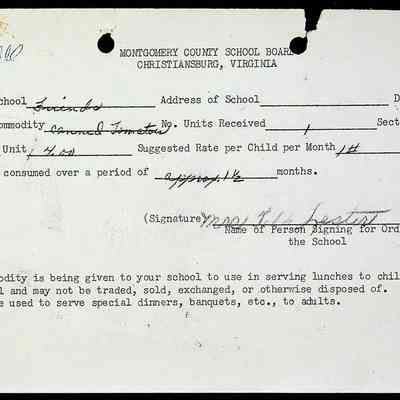 MONTGOMERY COUNTY SCHOOL BOARD
CHRISTIANSBURG, VIRGINIA
chool Friends Address of School D
ommodity canned Tomatoes No. Units Received 1 Sect
Unit 4.00 Suggested Rate per Child per Month 1#
consumed over a period of approx. 1½ months.
(Signature) Mrs. Lester
Name of Person Signing for Ord
the School
odity is being given to your school to use in serving lunches to chil
l and may not be traded, sold, exchanged, or otherwise disposed of.
e used to serve special dinners, banquets, etc., to adults.